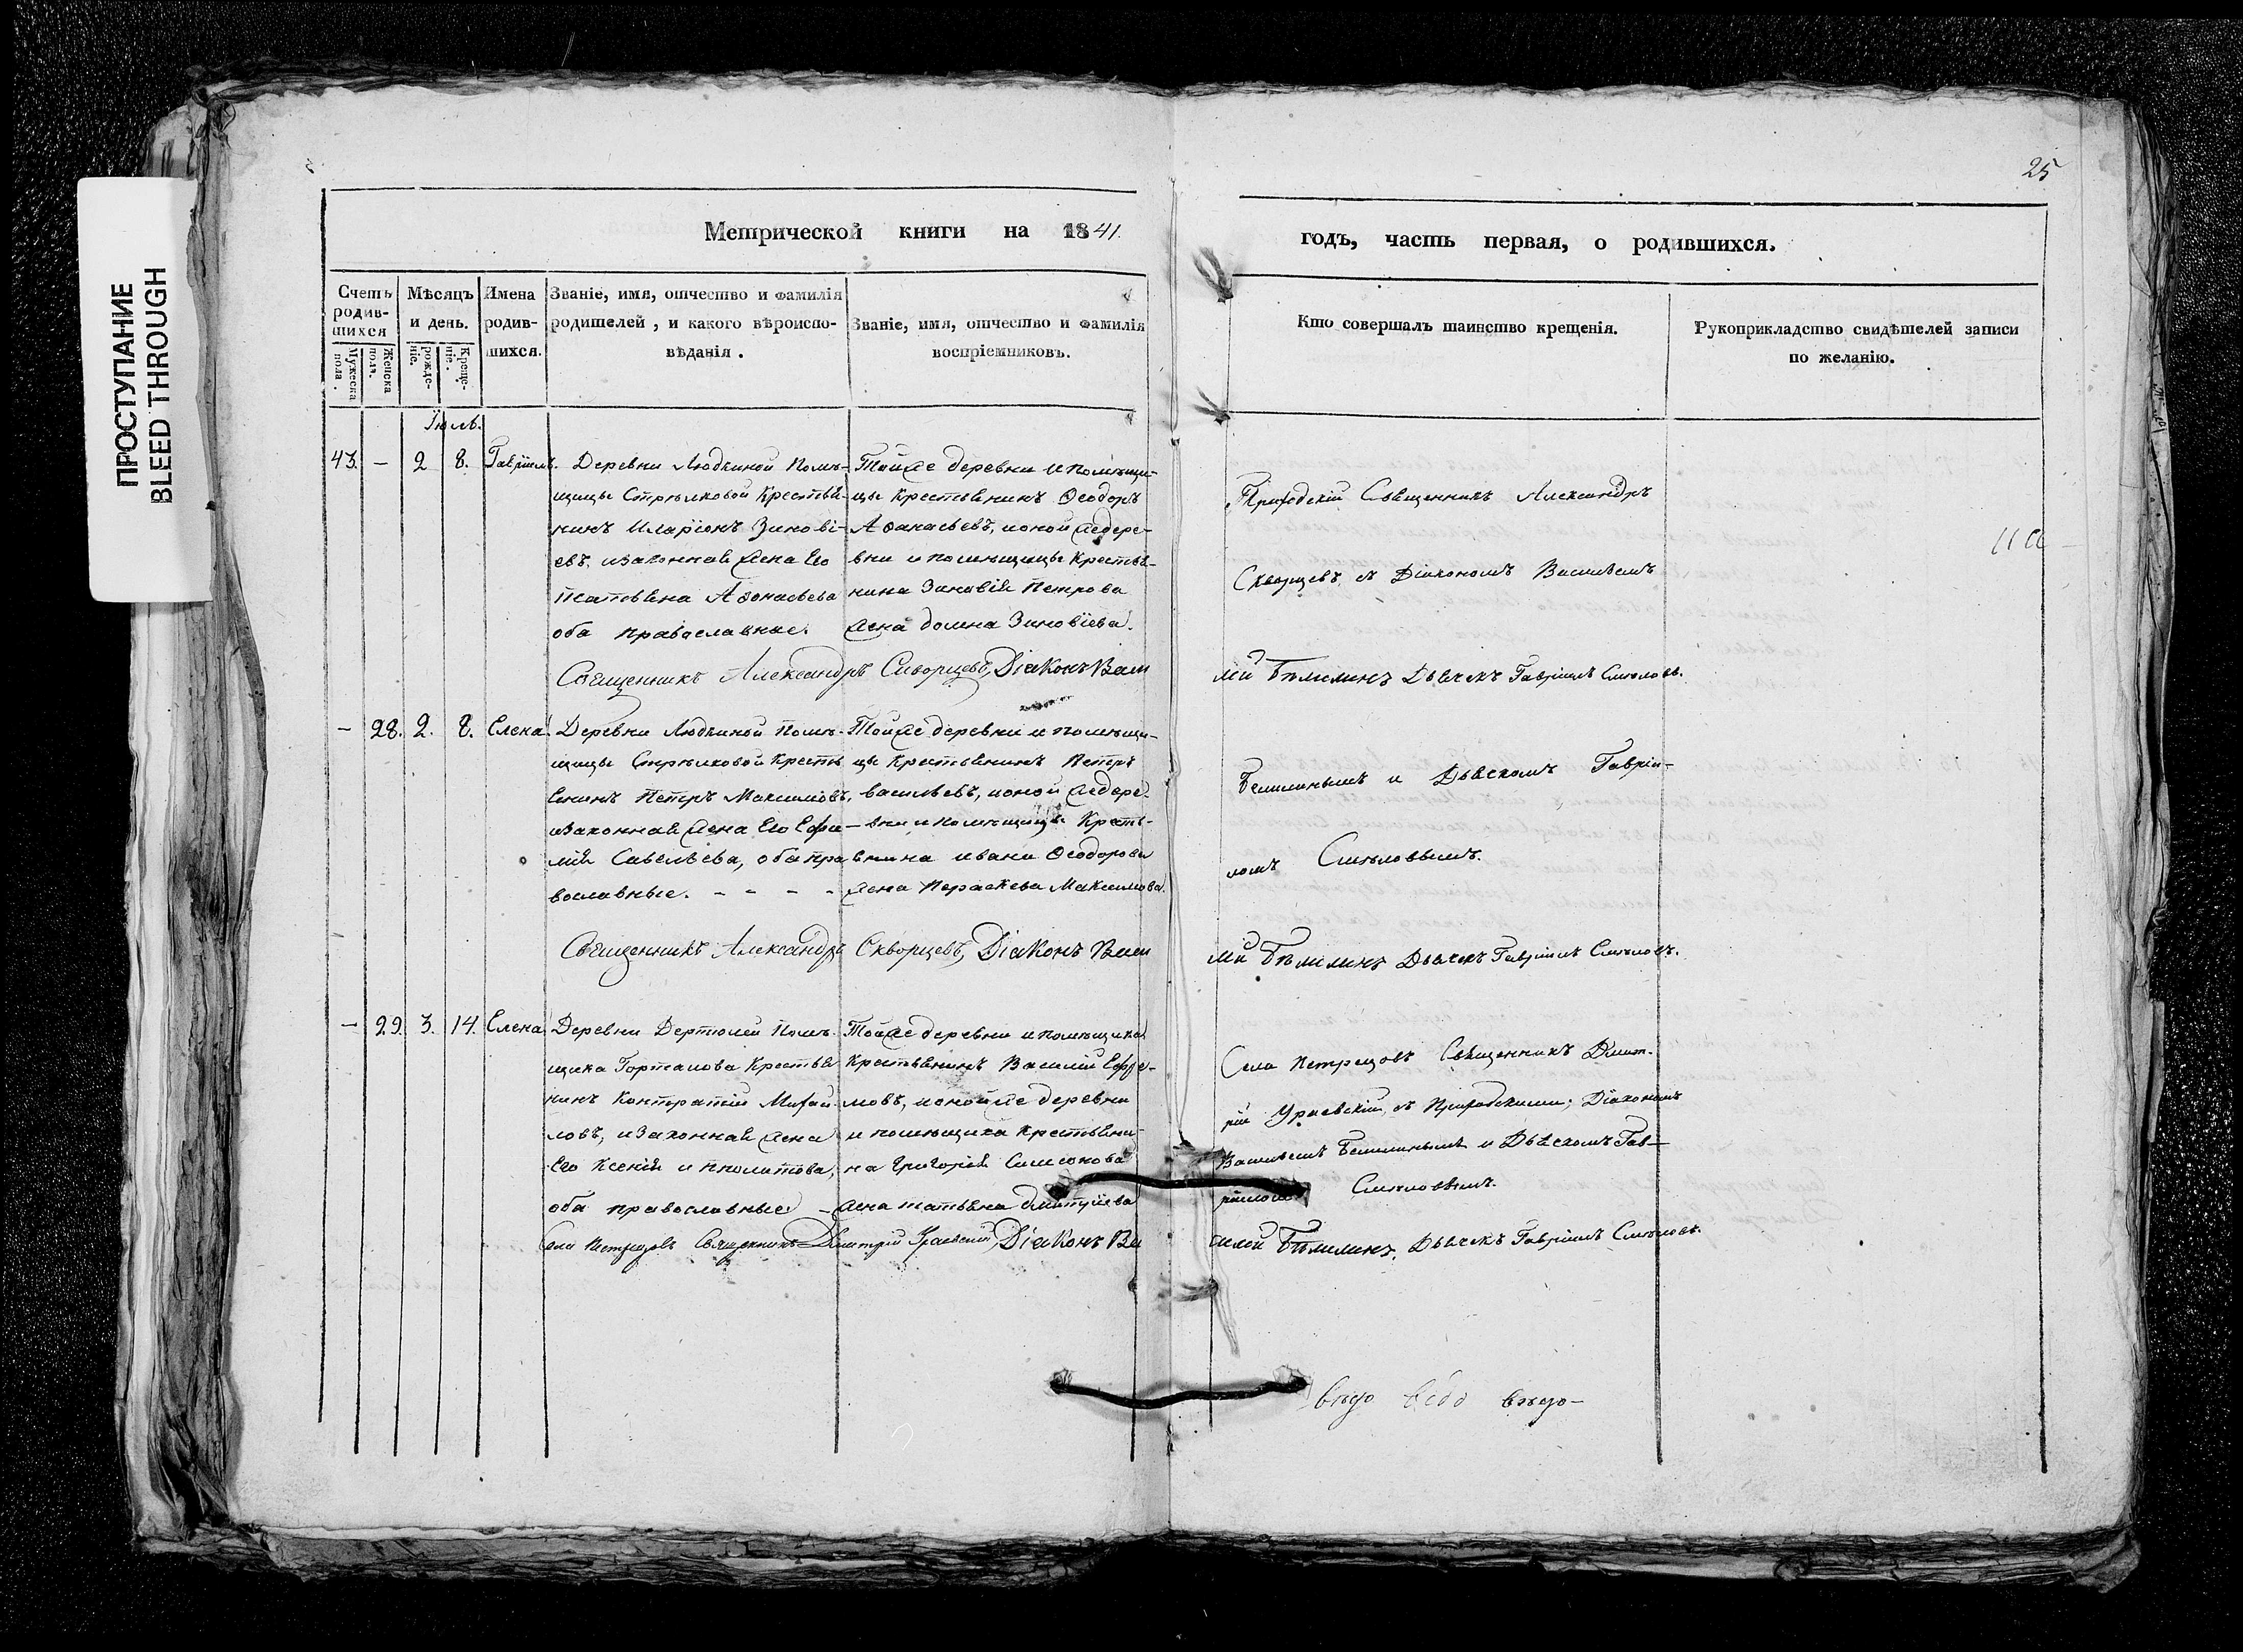 ПРОСТУПАНИЕ
BLEED THROUGH
25
Метрической книги на 1841
годъ, часть первая, о родившихся.
Счетъ родив-шихся
Мужеска пола.
Женска пола.
Мѣсяцъ и день.
рожде-ніе.
Креще-ніе.
Имена родив-шихся.
Званіе, имя, отчество и фамилія
родителей, и какого вѣроиспо-
вѣданія.
Званіе, имя, отчество и фамилія
воспріемниковъ.
Кто совершалъ таинство крещенія.
Рукоприкладство свидѣтелей записи
по желанію.
Іюль.
43. — 2 8. Гавріилъ.
Деревни Людкиной помѣ-
щицы Стрѣлковой крестья-
нинъ Иларіонъ Зинові-
евъ, изаконная жена Его
Татьяна Афонасьева
оба православные.
Тойже деревни и помѣщи-
цы крестьянинъ Ѳеодоръ
Афанасьевъ, ионой жедере-
вни и помѣщицы крестья-
нина Зиновія Петрова
жена домна Зиновіева.
Приходскій Священникъ Александръ
Скворцевъ съ Діакономъ Васильемъ
Священникъ Александръ Скворцевъ, Діаконъ Васи
лій Бѣлилинъ Дьячекъ Гавріилъ Смѣловъ.
— 28. 2. 8. Елена.
Деревни Людкиной помѣ-
щицы Стрѣлковой кресть
янинъ Петръ Максимовъ,
изаконная жена Его Ефи-
мія Савельева, оба пра
вославные. - - - -
Тойже деревни и помѣщи-
цы крестьянинъ Петръ
васильевъ, ионой жедере-
вни и помѣщицы кресть-
янина ивана Ѳеодорова
жена Параскева Максимова.
Белилинымъ и Дьяскомъ Гавріи-
ломъ Смѣловымъ.
Священникъ Александръ Скворцевъ, Діаконъ Васи
лій Бѣлилинъ Дьячекъ Гавріилъ Смѣловъ.
— 29. 3. 14. Елена.
Деревни Дертюлей помѣ-
щика Горталова крестья
нинъ Контратій Михай-
ловъ, изаконная жена
Его Ксенія и пполитова,
оба православные. —
Тойже деревни и помѣщика
крестьянинъ Василій Ефре-
мовъ, ионойже деревни
и помѣщика крестьяни-
на Григорія Симонова
жена татьяна дмитріева
Села Петрецовъ Священникъ Дмит-
рій Ураевскій, съ Приходскими; Діакономъ
Васильемъ Белилинымъ и Дьяскомъ Гав-
ріиломъ Смѣловымъ.
Села Петрецовъ Священникъ Дмитрій Ураевскій, Діаконъ Ва
силій Бѣлилинъ, Дьячекъ Гавріилъ Смѣловъ.